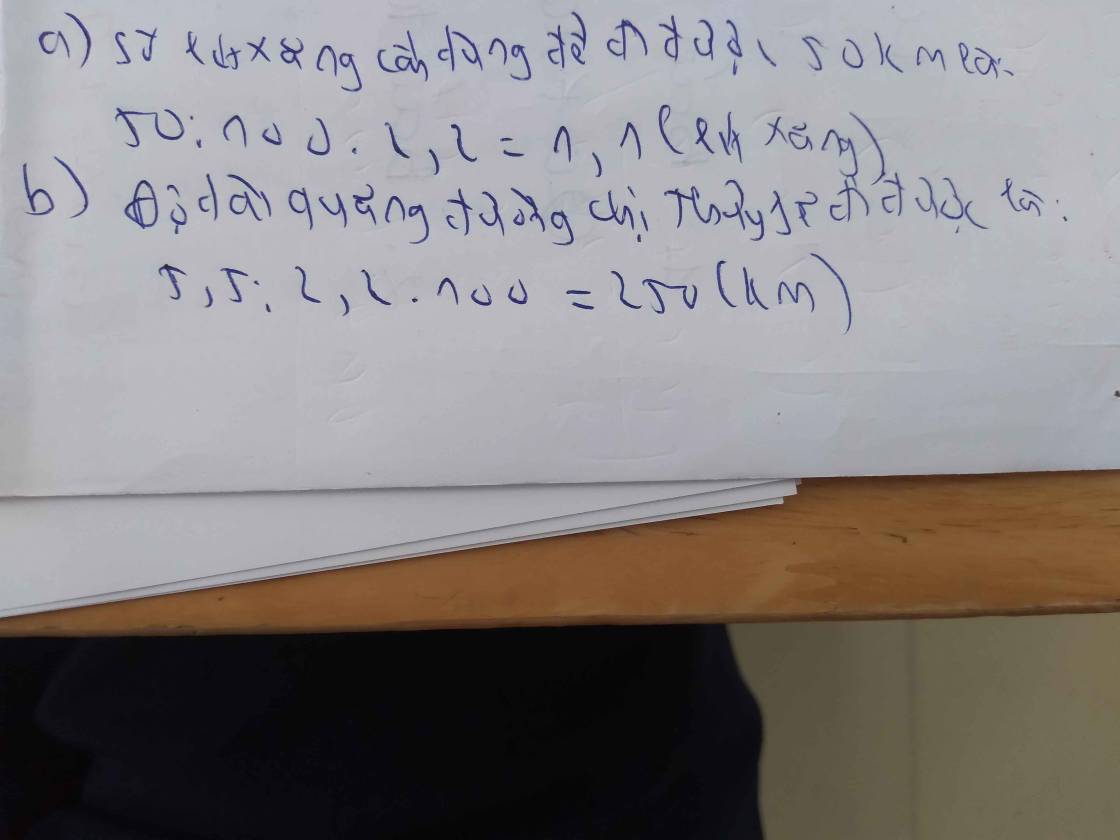 a) Số lít xăng cần dùng để đi được 50km là:
50:100.2,2=1,1(lít xăng)
b) Độ dài quãng đường chị Thủy sẽ đi được là:
5,5:2,2.100=250(km)